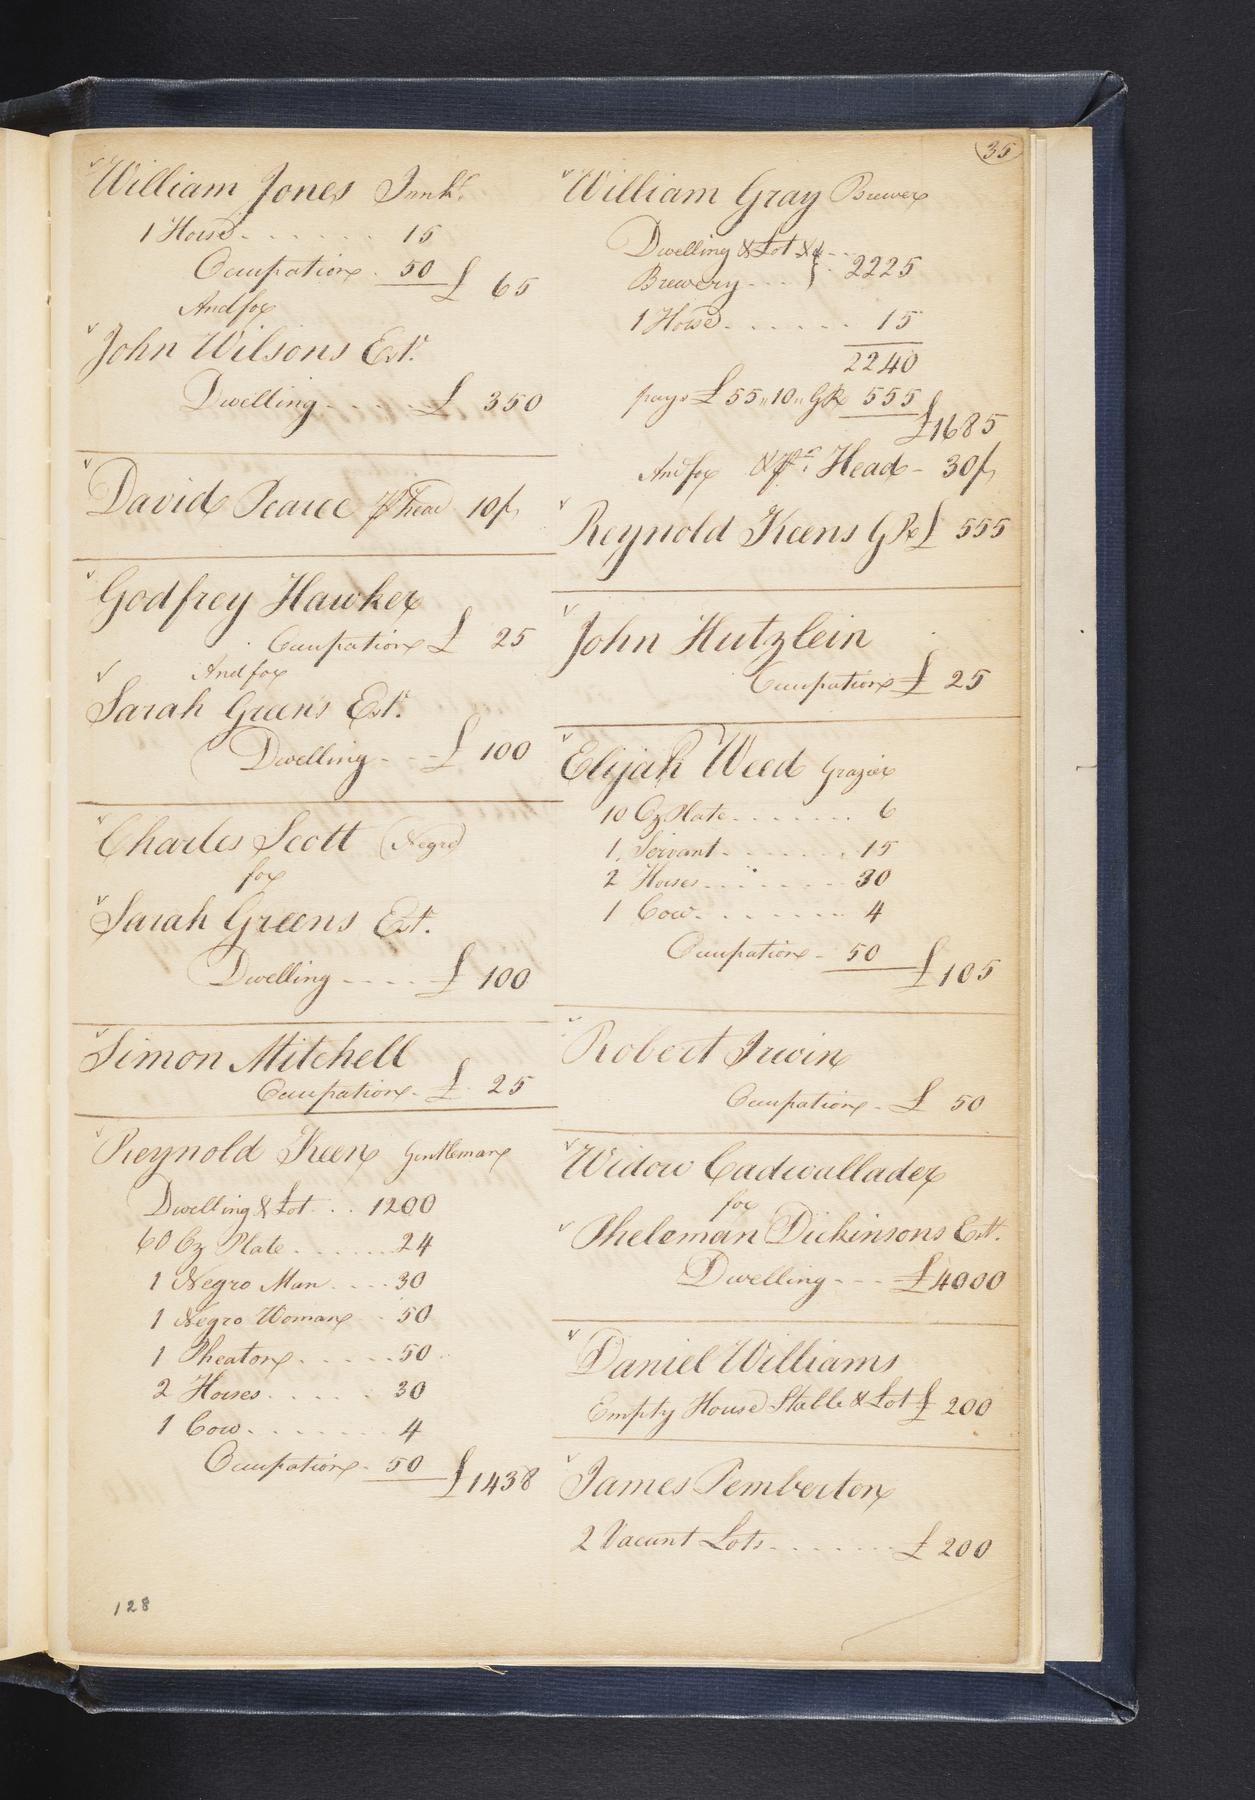 35
William Jones Innkr.
1 Horse 15
Occupation 50 £ 65
And for
John Wilsons Estr.
Dwelling £ 350
David Pearce ⅌ head 10/
Godfrey Hawker
Occupation £ 25
And for
Sarah Greens Estr.
Dwelling £ 100
Charles Scott (Negro)
for
Sarah Greens Est.
Dwelling £ 100
Simon Mitchell
Occupation £ 25
Reynold Keen Gentleman
Dwelling & Lot 1200
60 Oz Plate 24
1 Negro Man 30
1 Negro Woman 50
1 Pheaton 50
2 Horses 30
1 Cow 4
Occupation 50 £1438
128
William Gray Brewer
Dwelling & Lot &
Brewery } 2225
1 Horse 15
2240
pays £55,,10,, GR 555
£1685
And for Head 30/
Reynold Keens GR £ 555
John Hutzlein
Occupation £ 25
Elijah Weed Grazier
10 Oz Plate 6
1 Servant 15
2 Horses 30
1 Cow 4
Occupation 50 £105
Robert Irwin
Occupation £ 50
Widow Cadwallader
for
Pheleman Dickinsons Estt.
Dwelling £4000
Daniel Williams
Empty House Stable & Lot £ 200
James Pemberton
2 Vacant Lots £ 200